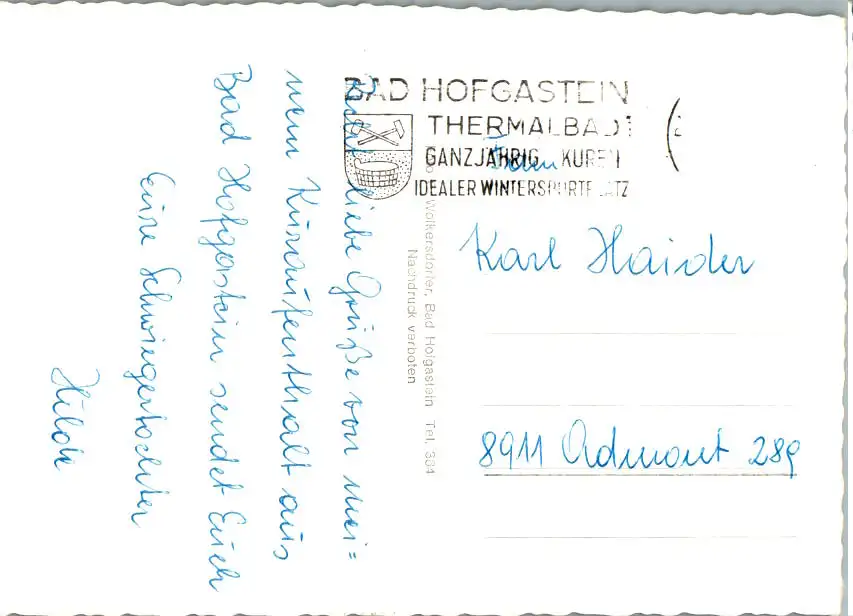 Recht liebe Grüße von mei=
nem Kuraufenthalt aus
Bad Hofgastein sendet Euch
Eure Schwiegertochter
Hilde
BAD HOFGASTEIN
THERMALBAD
GANZJÄHRIG KUREN
IDEALER WINTERSPORTPLATZ
Wolkersdorfer, Bad Hofgastein Tel. 384
Nachdruck verboten
Karl Haider
8911 Admont 289